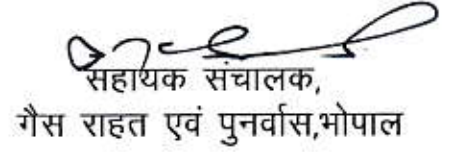 सहायक संचालक,
गैस राहत एवं पुनर्वास,भोपाल